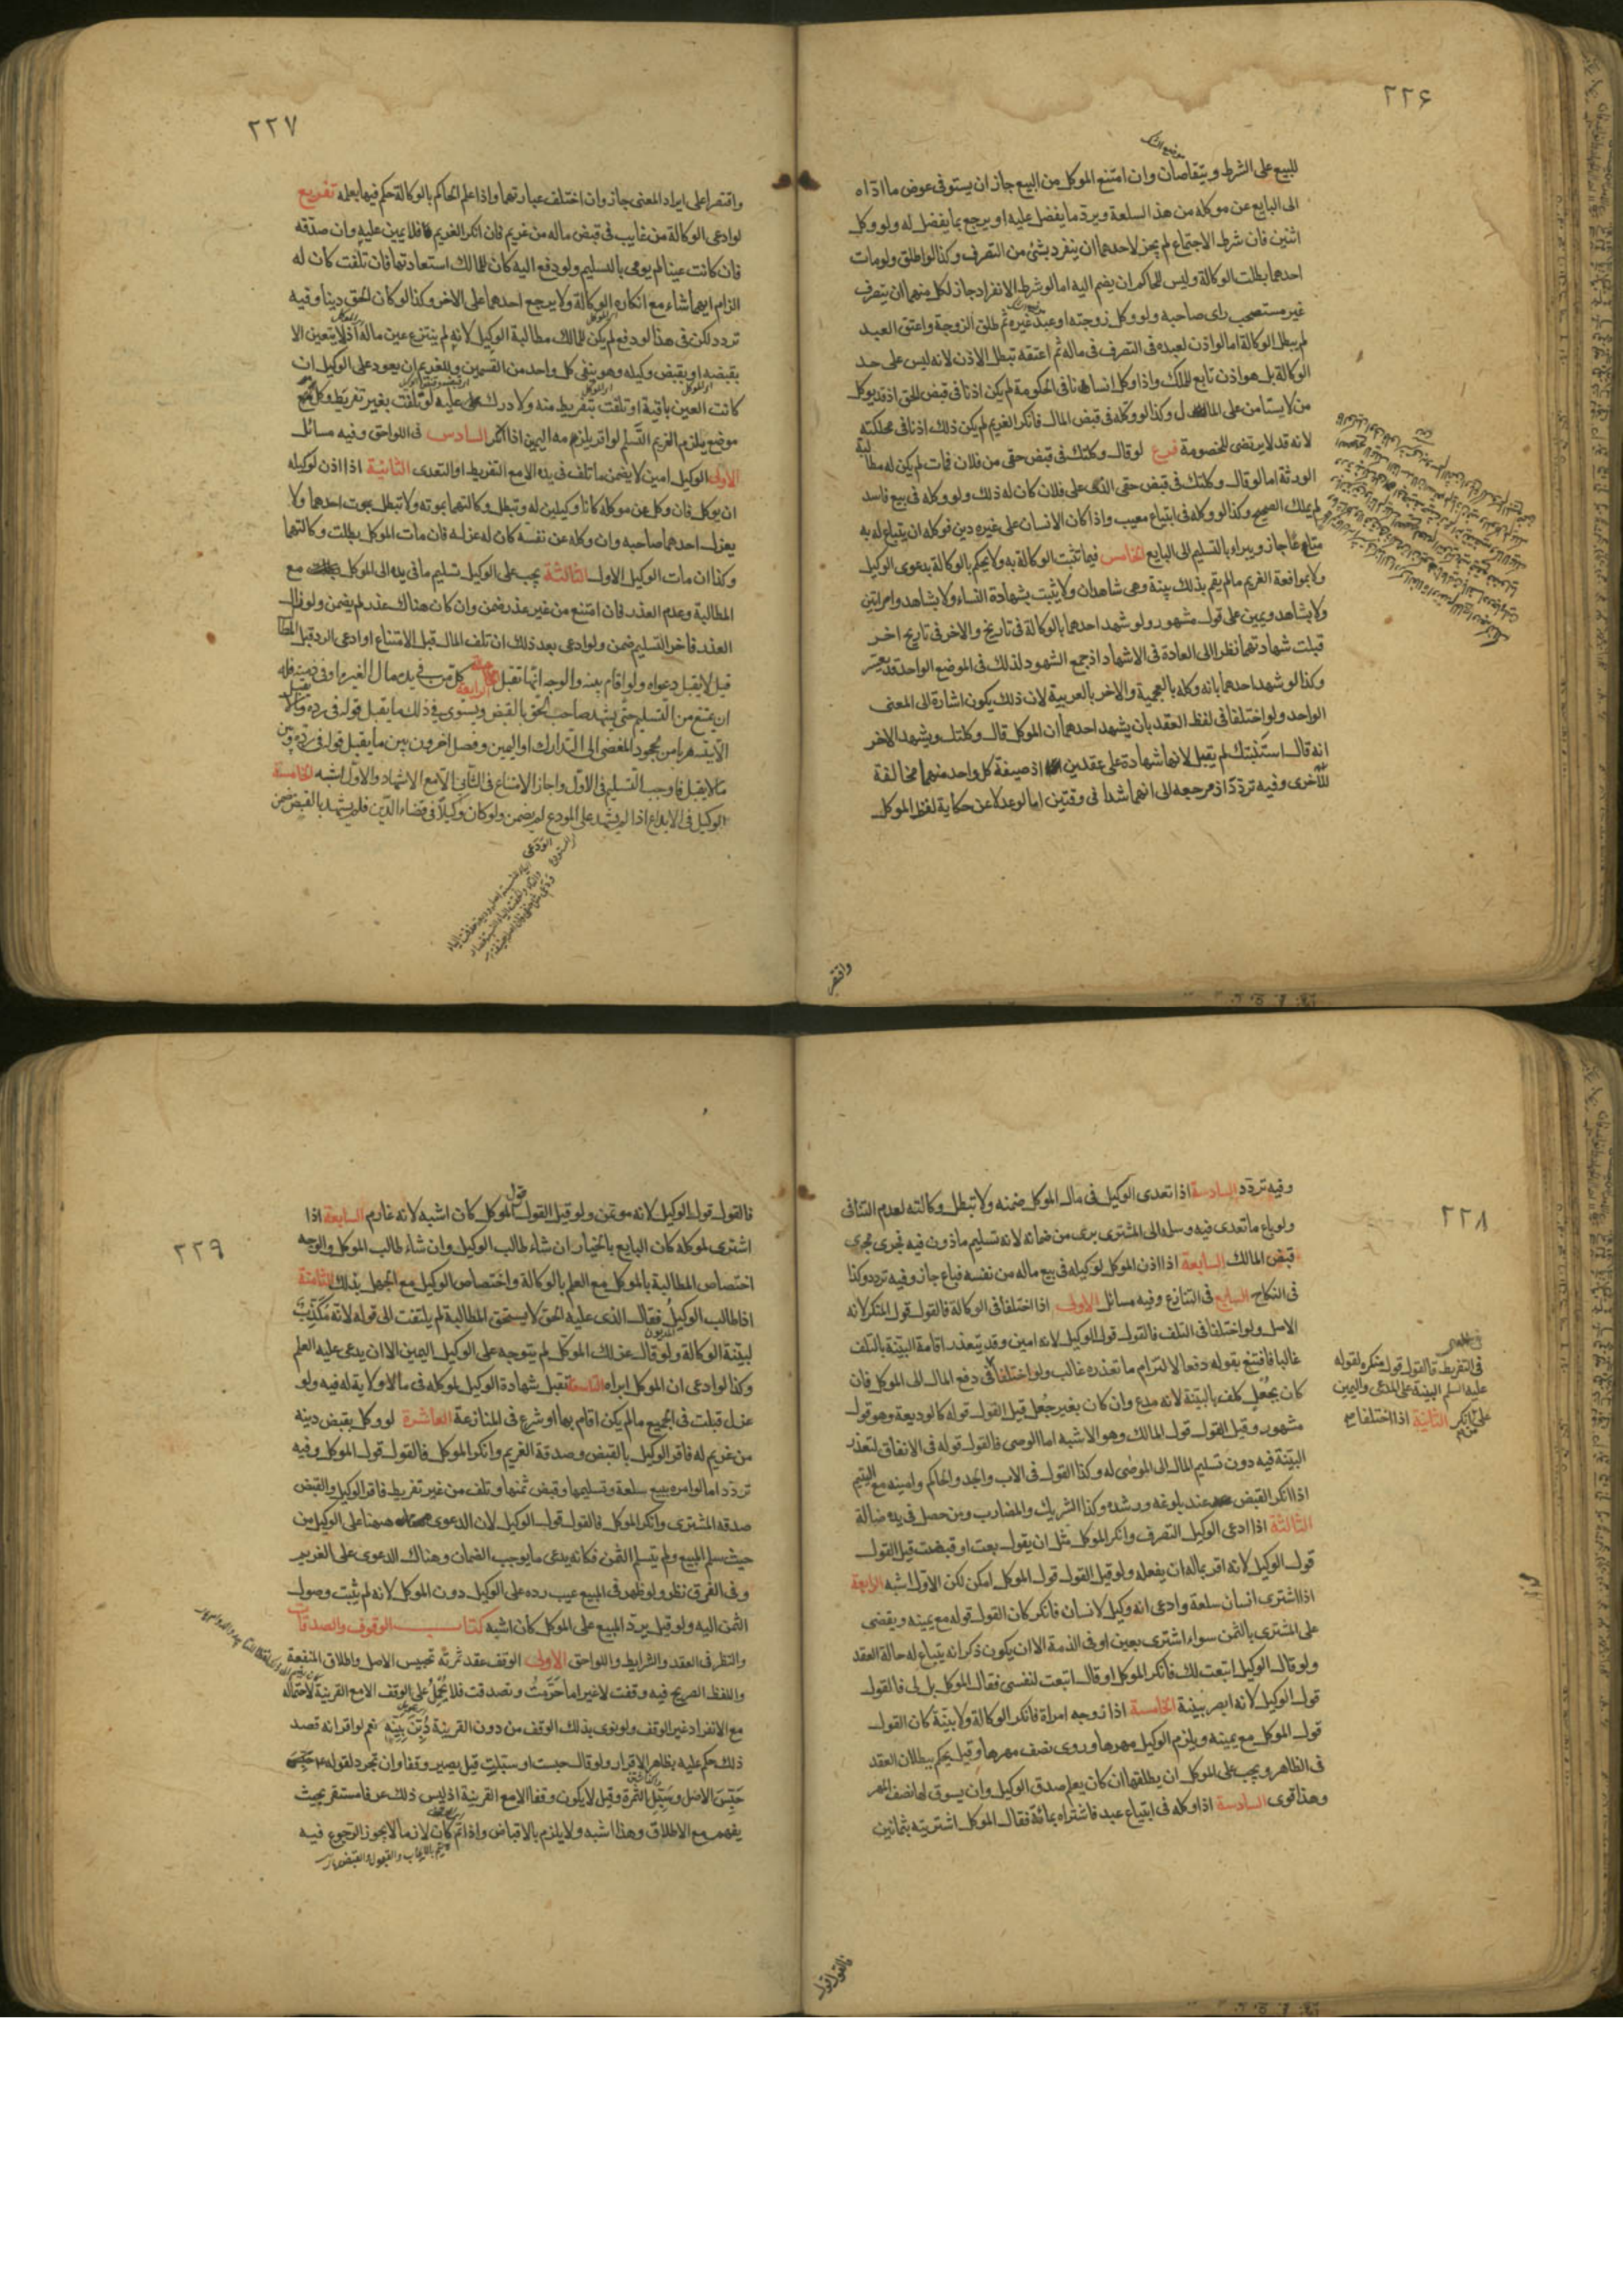 ٢٢۶
للبيع على الشرط ويتقاصان وان امتنع الموكل من البيع جاز ان يستوفى عوض ما اداه
الى البايع عن موكله من هذ السلعة ويرد ما يفضل عليه او يرجع بما يفضل له ولو وكل
اثنين فان شرط الاجتماع لم يجز لاحدهما ان ينفرد بشئ من التصرف وكذا لو اطلق ولو مات
احدهما بطلت الوكالة وليس للحاكم ان يضم اليه اما لو شرط الانفراد جاز لكل منهما ان يتصرف
غير مستصحب راى صاحبه ولو وكل زوجته او عبد غيره ثم طلق الزوجة واعتق العبد
لم يبطل الوكالة اما لو اذن لعبده فى التصرف فى ماله ثم اعتقه تبطل الاذن لانه ليس على حد
الوكالة بل هو اذن تابع للملك واذا وكل انسانا فى الحكومة لم يكن اذنا فى قبض الحق اذ قد يوكل
من لا يستامن على المال وكذا لو وكله فى قبض المال فانكر الغريم لم يكن ذلك اذنا فى محاكمته
لانه قد لا يرتضى للخصومة فرع لو قال وكلتك فى قبض حقى من فلان فمات لم يكن له مطالبة
الورثة اما لو قال وكلتك فى قبض حقى الذى على فلان كان له ذلك ولو وكله فى بيع فاسد
لم يملك الصحيح وكذا لو وكله فى ابتياع معيب واذا كان لانسان على غيره دين فوكله ان يبتاع له به
متاعا جاز ويبراء بالتسليم الى البايع الخامس فيما تثبت الوكالة به ولا يحكم بالوكالة بدعوى الوكيل
ولا بموافقة الغريم ما لم يقم بذلك بينة وهى شاهدان ولا يثبت بشهادة النساء ولا بشاهد وامراتين
ولا بشاهد ويمين على قول مشهور ولو شهد احدهما بالوكالة فى تاريخ والاخر فى تاريخ اخر
قبلت شهادتهما نظرا الى العادة فى الاشهاد اذ جمع الشهود لذلك فى الموضع الواحد قد يعسر
وكذا لو شهد احدهما بانه وكله بالعجمية والاخر بالعربية لان ذلك يكون اشارة الى المعنى
الواحد ولو اختلفا فى لفظ العقد بان يشهد احدهما ان الموكل قال وكلتك ويشهد الاخر
انه قال استنبتك لم يقبل لانها شهادة على عقدين اذ صيغة كل واحد منهما مخالفة
للاخرى وفيه تردّد اذ مرجعه الى انهما شهدا فى وقتين اما لو عدلا عن حكاية لفظ الموكل
واقتصر
٢٢٧
واقتصرا على ايراد المعنى جاز وان اختلف عبارتهما واذا علم الحاكم بالوكالة حكم فيها بعلمه تفريع
لو ادعى الوكالة من غايب فى قبض ماله من غريم فان انكر الغريم فلا يمين عليه وان صدقه
فان كانت عينا لم يومر بالتسليم ولو دفع اليه كان للمالك استعادتها فان تلفت كان له
الزام ايهما شاء مع انكاره الوكالة ولا يرجع احدهما على الاخر وكذا لو كان الحق دينا وفيه
تردد لكن فى هذا لو دفع لم يكن للمالك مطالبة الوكيل لانه لم ينتزع عين ماله اذ لا يتعين الا
بقبضه او بقبض وكيله وهو ينفى كل واحد من القسمين وللغريم ان يعود على الوكيل ان
كانت العين باقية او تلفت بتفريط منه ولا درك عليه لو تلفت بغير تفريط وكل
موضع يلزم الغريم التسلم لو اقر يلزمه اليمين اذا انكر السادس فى اللواحق وفيه مسائل
الاولى الوكيل امين لا يضمن ما تلف فى يده الا مع التفريط او التعدى الثانية اذا اذن لوكيله
ان يوكل فان وكل عن موكله كانا وكيلين له وتبطل وكالتهما بموته ولا تبطل بموت احدهما ولا
بعزل احدهما صاحبه وان وكله عن نفسه كان له عزله فان مات الموكل بطلت وكالتهما
وكذا ان مات الوكيل الاول الثالثة يجب على الوكيل تسليم ما فى يده الى الموكل مع
المطالبة وعدم العذر فان امتنع من غير عذر ضمن وان كان هناك عذر لم يضمن ولو زال
العذر فاخر التسليم ضمن ولو ادعى بعد ذلك ان تلف المال قبل الامتناع او ادعى الرد قبل المطا
قيل لا يقبل دعواه ولو اقام بينه والوجه انها تقبل الرابعة كل من فى يده مال لغيره او فى ذمته فله
ان يمتنع من التسليم حتى يشهد صاحب الحق بالقبض ويستوى فى ذلك ما يقبل قوله فى رده وما لا يقبل
الا ببينه هربا من الجحود المفضى الى الدرك او اليمين وفصل اخرون بين ما يقبل قوله فى رده وبين
ما لا يقبل فاوجب التسليم فى الاول واجاز الامتناع فى الثانى الا مع الاشهاد والاول اشبه الخامسة
الوكيل فى الايداع اذا لم يشهد على المودع لم يضمن ولو كان وكيلا فى قضاء الدين فلم يشهد بالقبض ضمن
٢٢٨
وفيه تردّد السادسة اذا تعدى الوكيل فى مال الموكل ضمنه ولا تبطل وكالته لعدم التنافى
ولو باع ما تعدى فيه وسلمه الى المشترى برئ من ضمانه لانه تسليم ماذون فيه فجرى مجرى
قبض المالك السابعة اذا اذن الموكل لوكيله فى بيع ماله من نفسه فباع جاز وفيه تردد وكذا
فى النكاح السابع فى التنازع وفيه مسائل الاولى اذا اختلفا فى الوكالة فالقول قول المنكر لانه
الاصل ولو اختلفا فى التلف فالقول قول الوكيل لانه امين وقد يتعذر اقامة البينة بالتلف
غالبا فاقتنع بقوله دفعا لالتزام ما تعذره غالب ولو اختلفا
فى التفريط فالقول قول منكره لقوله
عليه السلم البينة على المدعى واليمين
على من انكر الثانية اذا اختلفا صح
فى دفع المال الى الموكل فان
كان بجُعل كلف بالبينة لانه مدع وان كان بغير جُعل قيل القول قوله كالوديعة وهو قول
مشهور وقيل القول قول المالك وهو الاشبه اما الوصى فالقول قوله فى الانفاق لتعذر
البينة فيه دون تسليم المال الى الموصٰى له وكذا القول فى الاب والجد والحاكم وامينه مع اليتيم
اذا انكر القبض عند بلوغه ورشده وكذا الشريك والمضارب ومن حصل فى يده ضالة
الثالثة اذا ادعى الوكيل التصرف وانكر الموكل مثل ان يقول بعت او قبضت قيل القول
قول الوكيل لانه اقر بماله ان يفعله ولو قيل القول قول الموكل امكن لكن الاول اشبه الرابعة
اذا اشترى انسان سلعة وادعى انه وكيل لانسان فانكر كان القول قوله مع يمينه ويقضى
على المشترى بالثمن سواء اشترى بعين او فى الذمة الا ان يكون ذكر انه يبتاع له حالة العقد
ولو قال الوكيل ابتعت لك فانكر الموكل او قال ابتعت لنفسى فقال الموكل بل لى فالقول
قول الوكيل لانه ابصر بنيته الخامسة اذا زوجه امراة فانكر الوكالة ولا بينة كان القول
قول الموكل مع يمينه ويلزم الوكيل مهرها وروى نصف مهرها وقيل يحكم ببطلان العقد
فى الظاهر ويجب على الموكل ان يطلقها ان كان يعلم صدق الوكيل وان يسوق لها نصف المهر
وهذا قوى السادسة اذا وكله فى ابتياع عبد فاشتراه بمائة فقال الموكل اشتريته بثمانين
فالقول قول
٢٢٩
فالقول قول الوكيل لانه موتمن ولو قيل القول قول الموكل كان اشبه لانه غارم السابعة اذا
اشترى لموكله كان البايع بالخيار ان شاء طالب الوكيل وان شاء طالب الموكل والوجه
اختصاص المطالبة بالموكل مع العلم بالوكالة واختصاص الوكيل مع الجهل بذلك الثامنة
اذا طالب الوكيل فقال الذى عليه الحق لا يستحق المطالبة لم يلتفت الى قوله لانه مكذب
لبينة الوكالة ولو قال عزلك الموكل لم يتوجه على الوكيل اليمين الا ان يدعى عليه العلم
وكذا لو ادعى ان الموكل ابراه التاسعة تقبل شهادة الوكيل لموكله فى ما لا ولاية له فيه ولو
عزل قبلت فى الجميع ما لم يكن اقام بها او شرع فى المنازعة العاشرة لو وكل بقبض دينه
من غريم له فاقر الوكيل بالقبض وصدقه الغريم وانكر الموكل فالقول قول الموكل وفيه
تردّد اما لو امره ببيع سلعة وتسليمها وقبض ثمنها وتلف من غير تفريط فاقر الوكيل والقبض
صدقه المشترى وانكر الموكل فالقول قول الوكيل لان الدعوى ههنا على الوكيل من
حيث سلم المبيع ولم يتسلم الثمن فكانه يدعى ما يوجب الضمان وهناك الدعوى على الغريم
وفى الفرق نظر ولو ظهر فى المبيع عيب رده على الوكيل دون الموكل لانه لم يثبت وصول
الثمن اليه ولو قيل يردّ المبيع على الموكل كان اشبه كتاب الوقوف والصدقات
والنظر فى العقد والشرايط واللواحق الاولى الوقف عقد ثمرته تحبيس الاصل واطلاق المنفعة
واللفظ الصريح فيه وقفت لا غير اما حرمت وتصدقت فلا يحمل على الوقف الا مع القرينة لاحتماله
مع الانفراد غير الوقف ولو نوى بذلك الوقف من دون القرينة دُيّن بنيته نعم لو اقر انه قصد
ذلك حكم عليه بظاهر الاقرار ولو قال حبست او سبلت قيل يصير وقفا وان تجرد لقوله ع
حبّس الاصل وسبّل الثمرة وقيل لا يكون وقفا الا مع القرينة اذ ليس ذلك عرفا مستقر بحيث
يفهم مع الاطلاق وهذا اشبه ولا يلزم بالاقباض واذا تم كان لازما لا يجوز الرجوع فيه